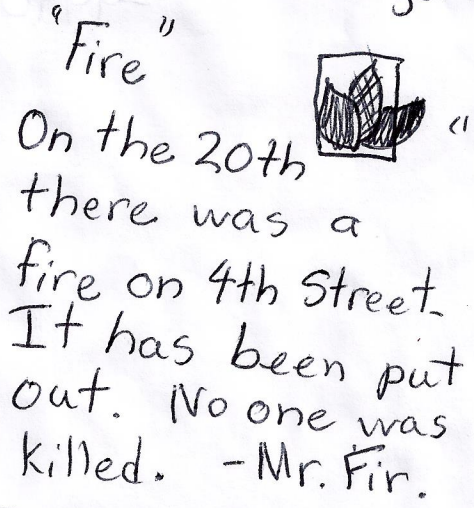 "Fire"
On the 20th
there was a
fire on 4th Street.
It has been put
out. No one was
killed. -Mr. Fir.